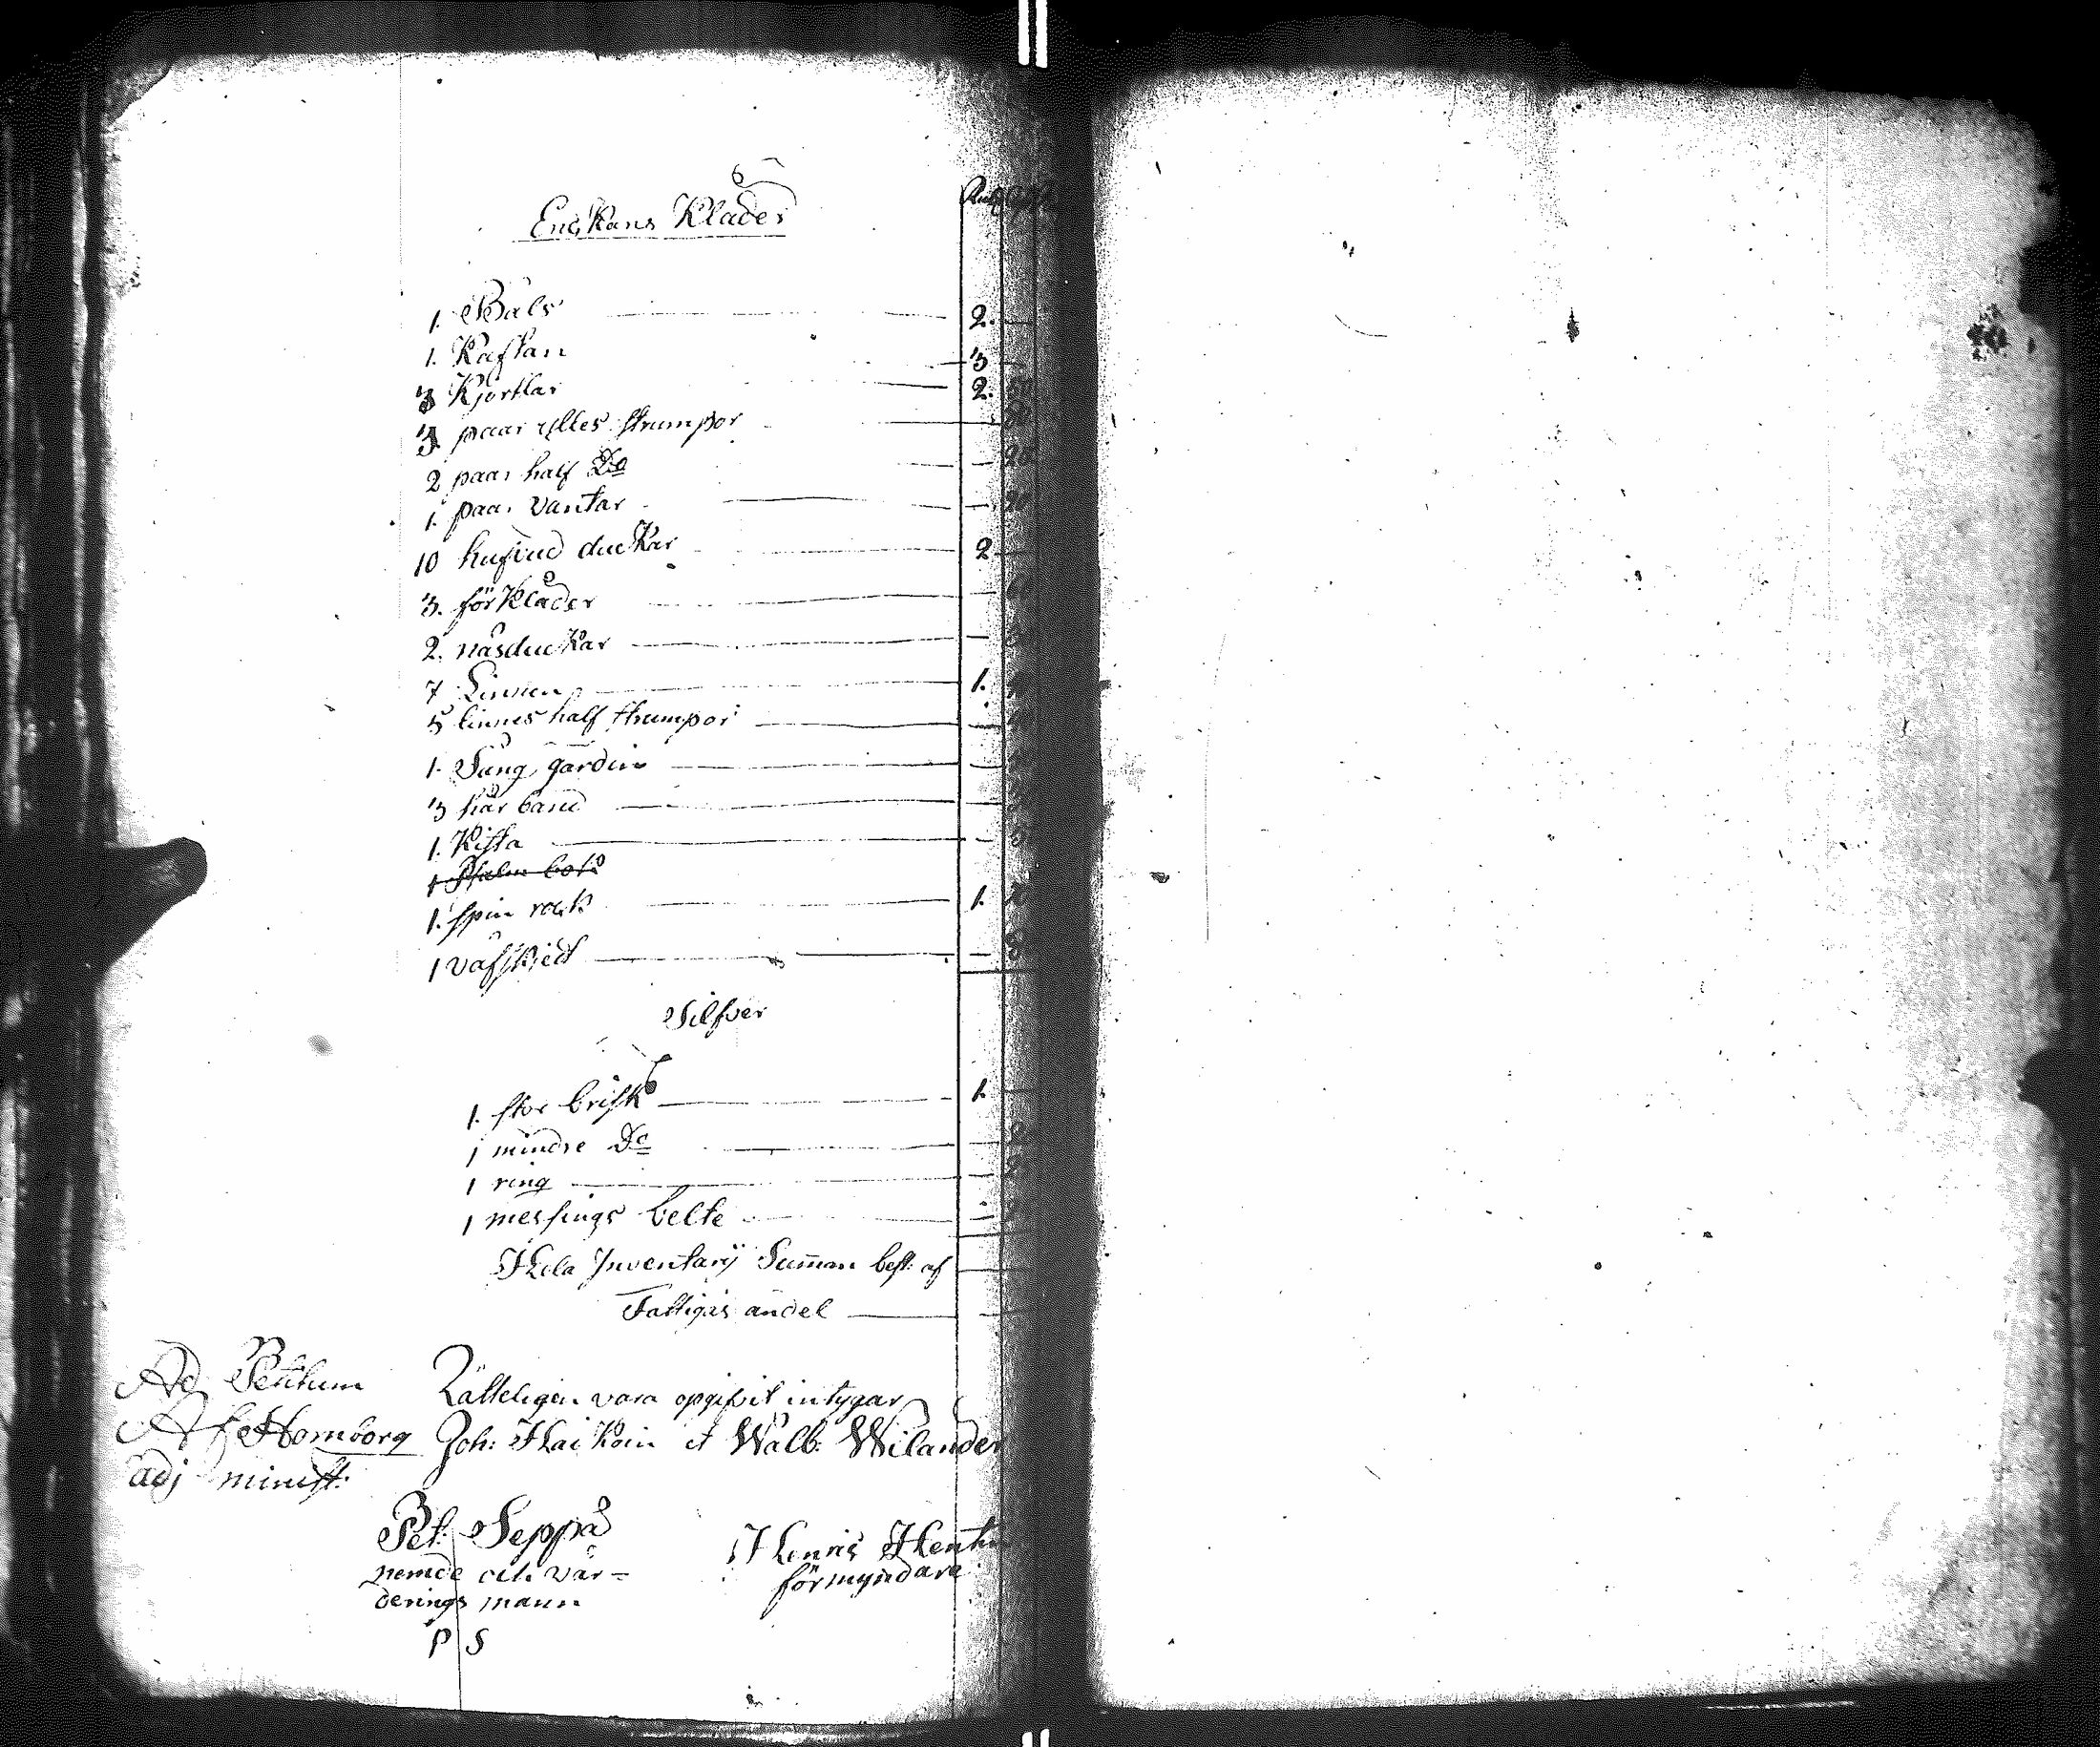 Enckans Kläder
1. Päls 2.
1. Kaftan 3
3 Kjortlar 2. 50
3 paar ylles strumpor
2 paar half Do 20
1. paar vantar
10 hufvud duckar 2
3. förkläder 60
2. näsduckar
7 Linnen 1.
5 linnes half strumpor
1. Säng gardin
3 hår band
1. Kista
1 Psalm bok
1. spin rock 1.
1 väfsked
Silfver
1. stor brisk 1.
1 mindre Do
1 ring
1 messings belte
Hela Inventarij Summan best: af
Fattigas andel
Ad Petitum
Hornborg
adj minist:
Rätteligen vara opgifvit intygar
Joh: Haikoin et Walb: Wilander
Pet: Seppä
nemde och vär=
derings mann
P S
Henric
förmyndare